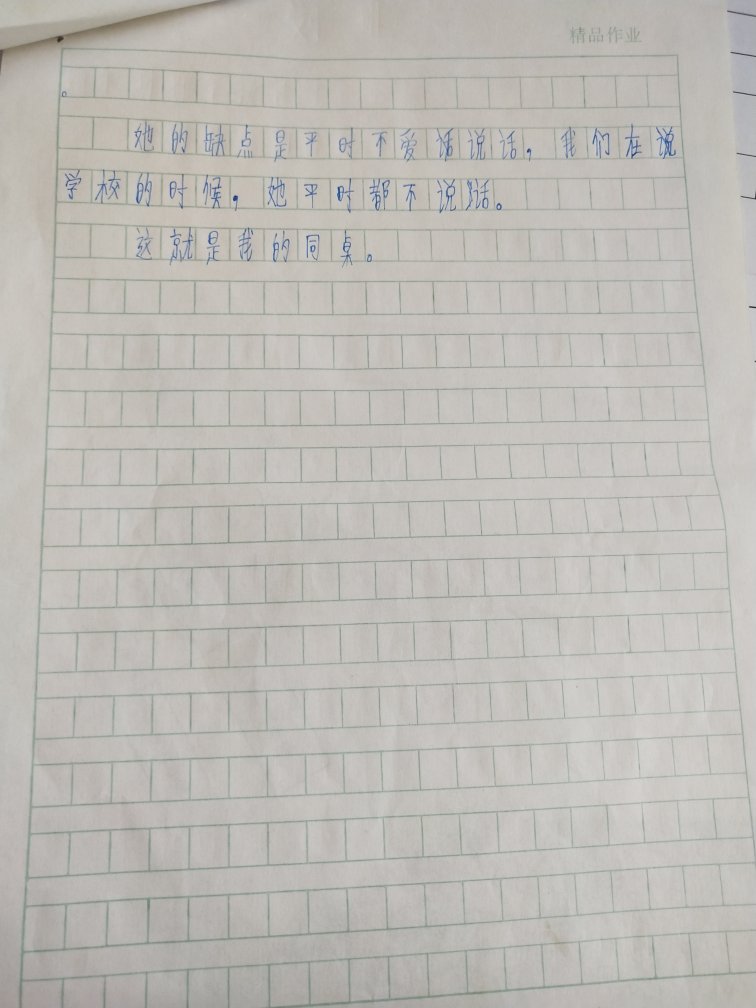 精品作业
。
她的缺点是平时不爱话说话，我们在说
学校的时候，她平时都不说话。
这就是我的同桌。